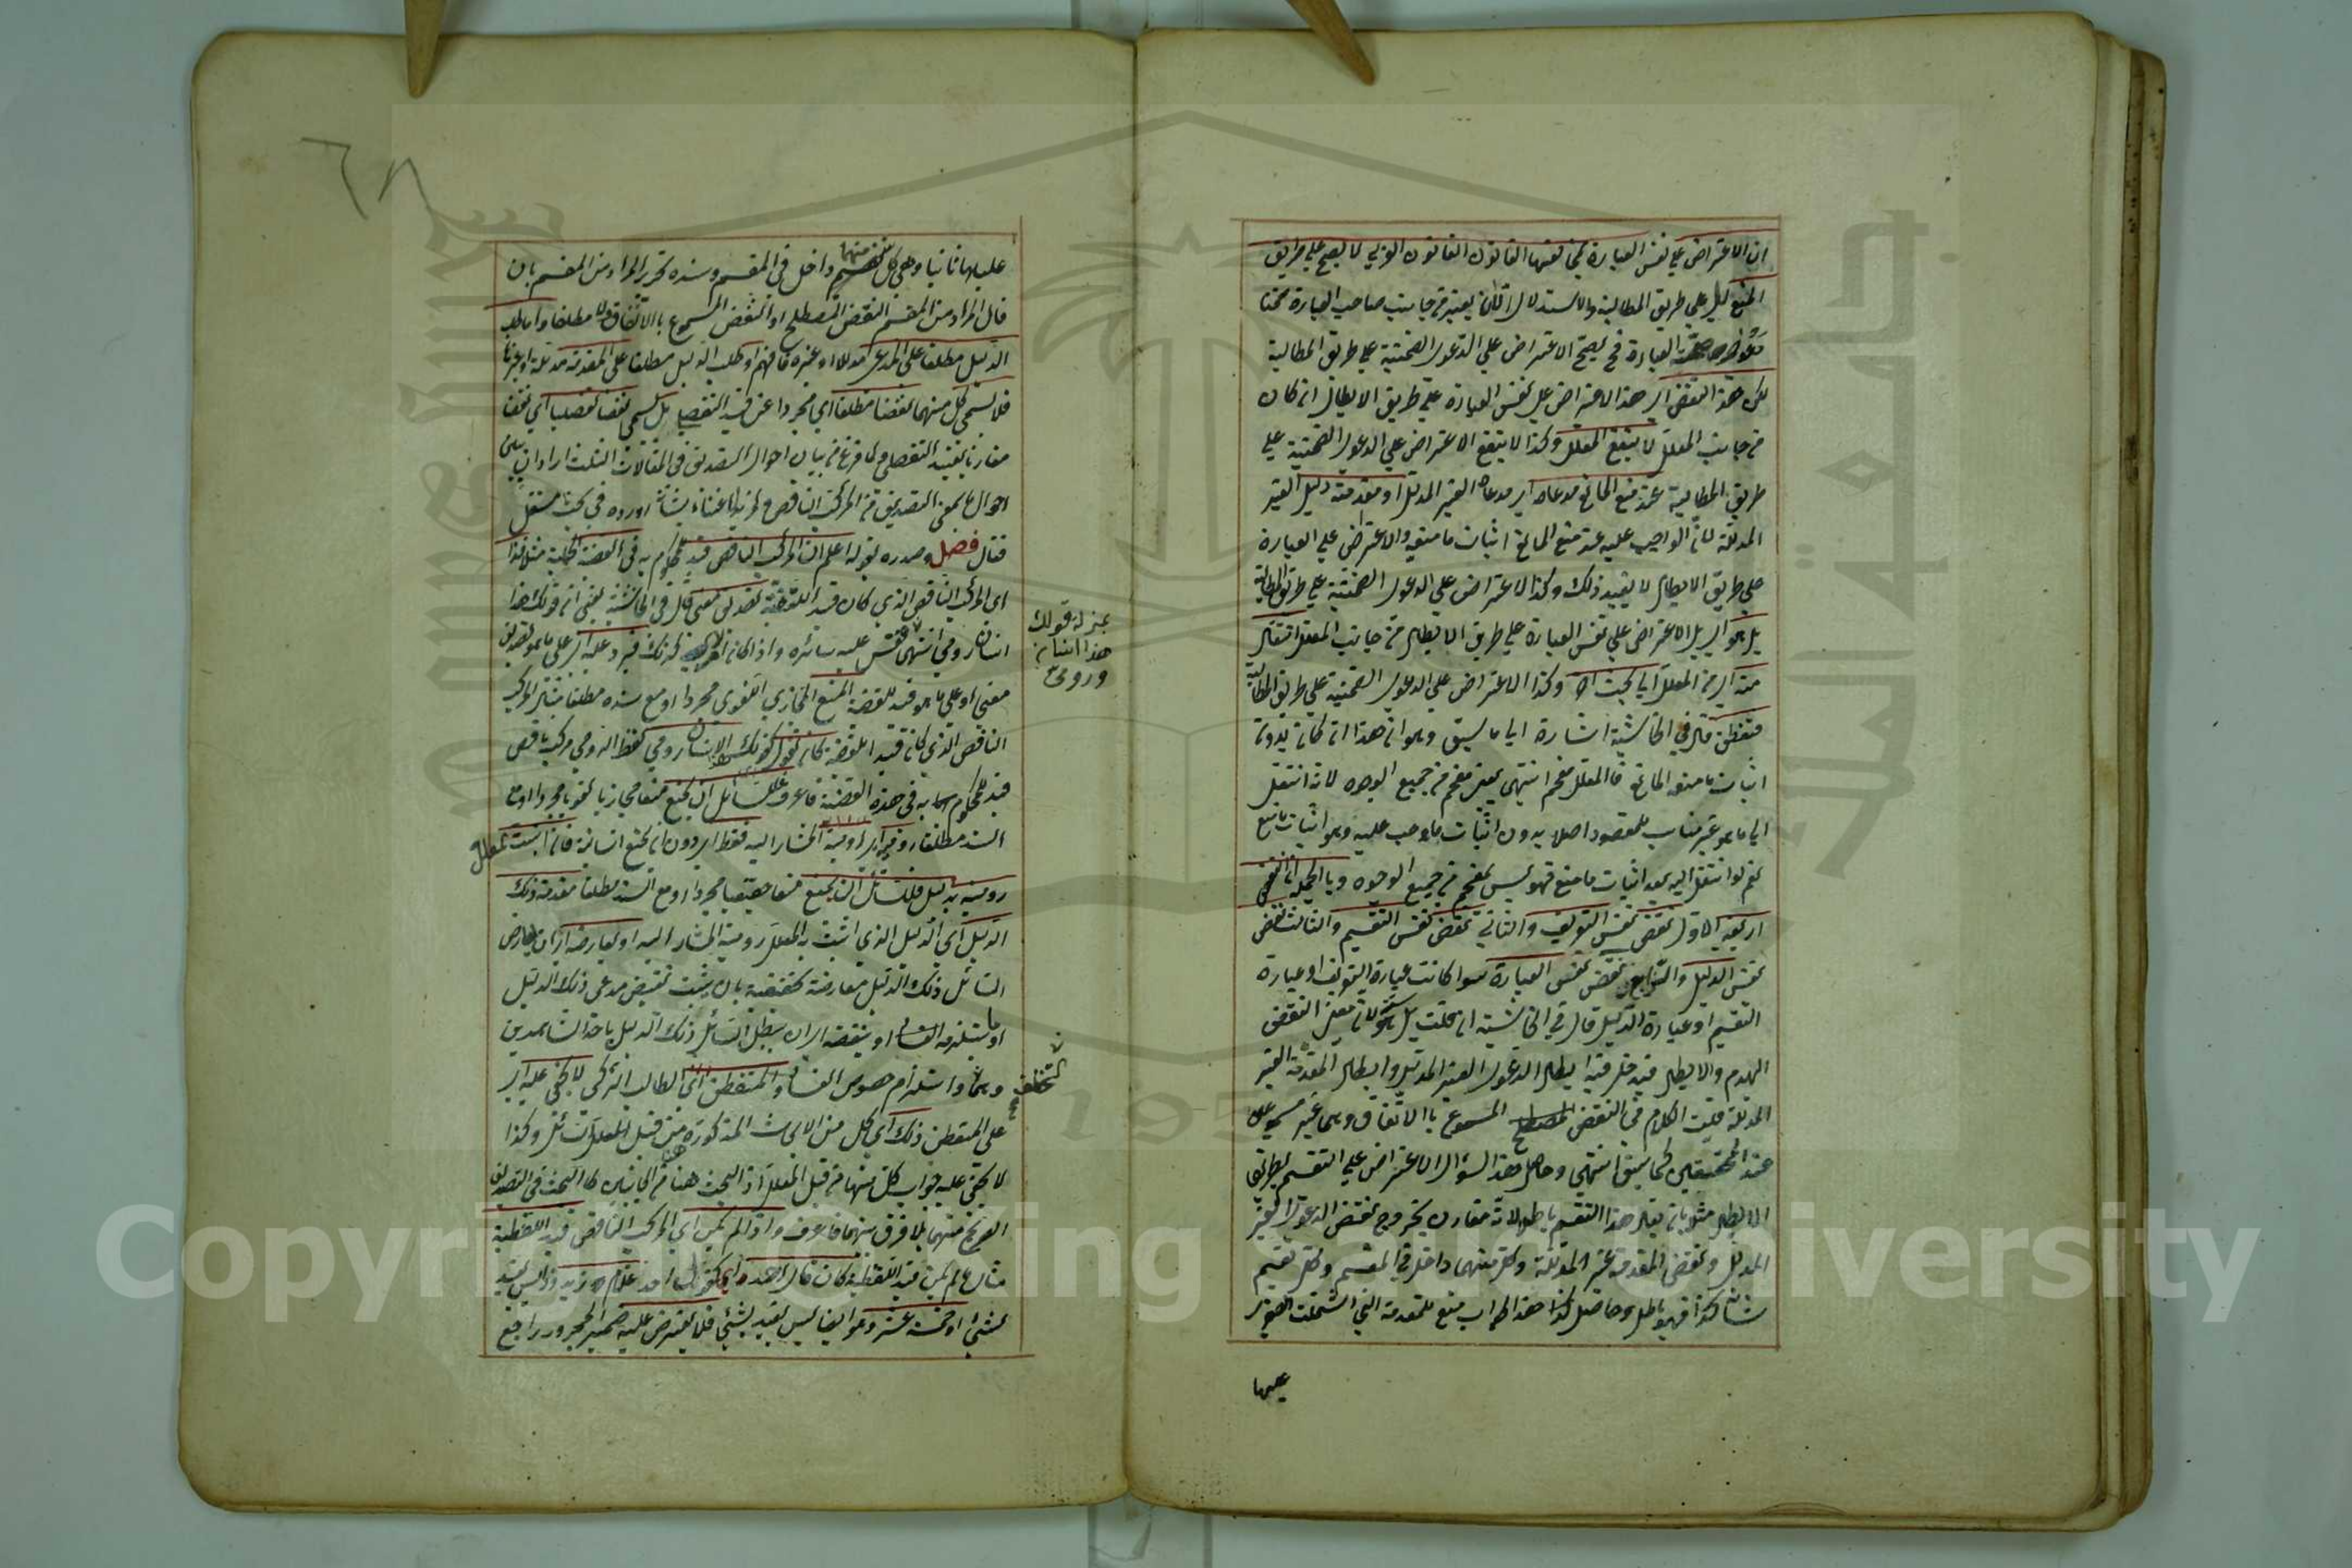 ان الاعتراض على نفس العبارة بمخالفتها القانون القانون العربي لا يصح على طريق
المنع بل على طريق المطالبة والاستدلال
العبارة فح يصح الاعتراض على الدعوى الضمنية على طريق المطالبة
لكن هذا النقض اى هذا الاعتراض على نفس العبارة على طريق الابطال ان كان
من جانب المعلل لا ينفع المعلل وكذا لا ينفع الاعتراض على الدعوى الضمنية على
طريق المطالبة عند منع المانع مدعاه اى مدعاه الغير المدلل او مقدمة دليل الغير
المدللة لان الواجب عليه عند منع المانع اثبات ما منعه والاعتراض على العبارة
على طريق الابطال لا يفيد ذلك وكذا الاعتراض على الدعوى الضمنية على طريق المطالبة
بل هو اى بل الاعتراض على نفس العبارة على طريق الابطال من جانب المعلل انتقال
منه اى من المعلل الى بحث آخر وكذا الاعتراض على الدعوى الضمنية على طريق المطالبة
فتفطن قال في الحاشية اشارة الى ما سبق وهو ان هذا ان كان بدون
اثبات ما منعه المانع فالمعلل مفحم انتهى يعنى مفحم من جميع الوجوه لانه انتقل
الى ما هو غير مناسب للمقصود اصلا بدون اثبات ما وجب عليه وهو اثبات ما منع
نعم لو انتقل اليه بعد اثبات ما منع فهو ليس بمفحم من جميع الوجوه وبالجملة ان النقض
اربعة الاول نقض نفس التعريف والثاني نقض نفس التقسيم والثالث نقض
نفس الدليل والرابع نقض نفس العبارة سواء كانت عبارة التعريف او عبارة
التقسيم او عبارة الدليل قال في الحاشية ان قلت بل هو لان معنى النقض
الهدم والابطال فيدخل فيه ابطال الدعوى الغير المدلل وابطال المقدمة الغير
المدللة قلت الكلام في النقض المصطلح المسموع بالاتفاق وهما غير مسموعين
عند المحققين كما سبق انتهى وحاصل هذا السؤال الاعتراض على التقسيم بطريق
الابطال مثلا بان يقال هذا التقسيم باطل لانه مقارن بخروج نقض الدعوى الغير
المدلل ونقض المقدمة غير المدللة وكل منهما داخل في المقسم وكل تقسيم
شانه كذا فهو باطل وحاصل هذا الجواب منع للمقدمة التي اشتملت الصغرى
عليها
٦٨
عليها ثانيا وهي كل منهما داخل في المقسم وسنده تحرير المراد من المقسم بان
قال المراد من المقسم النقض المصطلح او النقض المسموع بالاتفاق مطلقا واما طلب
الدليل مطلقا على المدعى مدللا او غيره فافهم او طلب الدليل مطلقا على المقدمة مدللة او غيرها
فلا يسمى كل منهما نقضا مطلقا اي مجردا عن قيد التفصيل بل يسمى نقضا تفصيليا اي نقضا
مقارنا بقيد التفصيل ولما فرغ من بيان احوال التصديق في المقالات الثلث اراد ان يبين
احوال ما بمعنى التصديق من المركب الناقص ولمزيد الاعتناء بشانه اورده في بحث مستقل
فقال فصل وصدره بقوله اعلم ان المركب الناقص قيد المحكوم به في القضية الحملية مثلا اذا
اى المركب الناقص الذي كان قيد القضية تصديق معنى قال في الحاشية يعنى ان قولك هذا
انسان رومي انتهى فقس عليه سائره واذا كان كذلك فيرد عليه اى على ما هو تصديق
معنى او على ما هو قيد للقضية المنع المجازي اللغوي مجردا او مع سنده مطلقا مثال المركب
الناقص الذي كان قيد القضية كان تقول الانسان رومي لفظ الرومي مركب ناقص
قيد للمحكوم به في هذه القضية فاعرف فللسائل ان يمنع منعا مجازيا لغويا مجردا او مع
السند مطلقا روميته اى رومية المشار اليه فقط اى دون ان يمنع انسانيته فان اثبت المعلل
روميته بدليل فللسائل ان يمنع منعا حقيقيا مجردا او مع السند مطلقا مقدمة ذلك
الدليل اي الدليل الذي اثبت به المعلل رومية المشار اليه او يعارضه اى ان يعارض
السائل ذلك الدليل معارضة تحقيقية بان يثبت نقيض مدعى ذلك الدليل
او ما يستلزمه او ينقضه اى ان يبطل السائل ذلك الدليل باحد الشاهدين
وهما واستلزام خصوص الفساد والمتفطن اي الطالب الذكي لا يخفى عليه اى
على المتفطن ذلك اي كل من الابحاث المذكورة من قبل المعلل والسائل وكذا
لا يخفى عليه جواب كل منها من قبل المعلل اذ البحث هنا من الجانبين كالبحث في التصديق
الصريح منهما بلا فرق بينهما فاعرف واذا لم يكن اي المركب الناقص قيد القضية
مثال ما لم يكن قيد القضية كان قال احد غلام زيد اذ ليس بقيد
بشئ او خمسة عشر وهو ايضا ليس بقيد بشئ فلا يعترض عليه ضمير المجرور راجع
بمنزلة قولك
هذا انسان
ورومي
التخلف